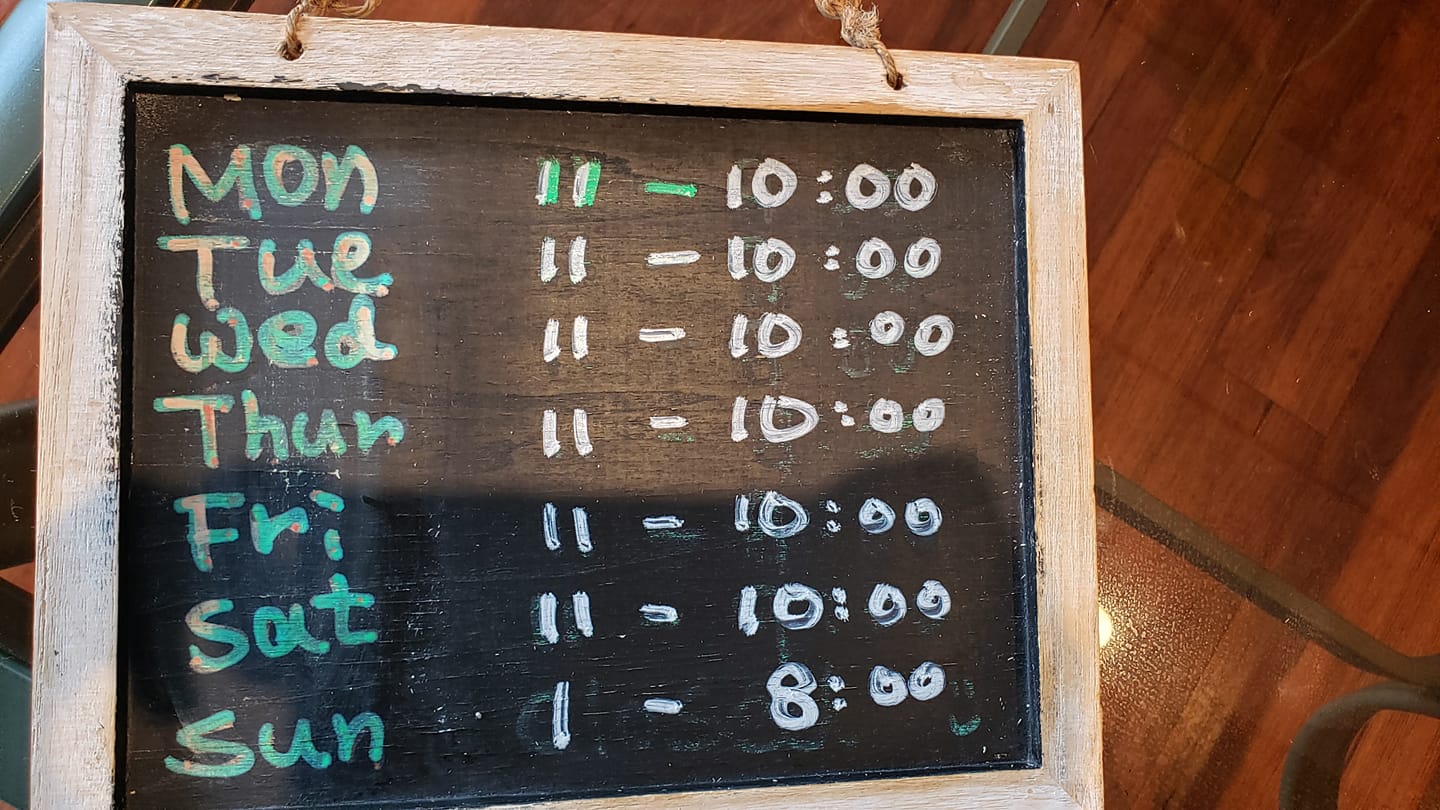 Mon 11 - 10:00
Tue 11 - 10:00
Wed 11 - 10:00
Thur 11 - 10:00
Fri 11 - 10:00
Sat 11 - 10:00
Sun 1 - 8:00